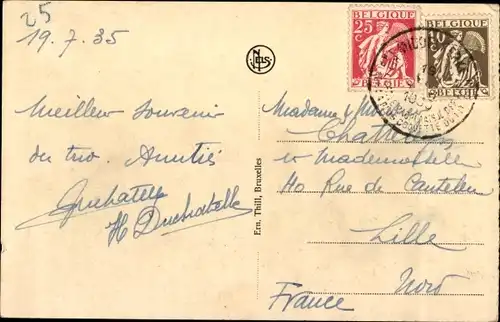 25
19.7.35
Meilleur souvenir
du trio. Aunties
H Duchatelle
Nels
Ern. Thill, Bruxelles
BELGIQUE
25
BELGIE
BELGIQUE
10
BELGIË
Madame &
et Mademoiselle
40 Rue de Canteleu
Lille
Nord
France